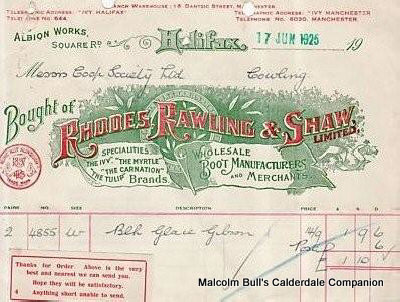 BRANCH WAREHOUSE: 18 DANTZIC STREET, MANCHESTER
TELEGRAPHIC ADDRESS: "IVY HALIFAX" TELEGRAPHIC ADDRESS: "IVY MANCHESTER"
TELEPHONE No 644 TELEPHONE No. 6030, MANCHESTER
ALBION WORKS,
SQUARE RD. Halifax, 17 JUN 1925 19
Messrs Coop Society Ltd Cowling
Bought of
RHODES, RAWLING & SHAW
LIMITED.
SPECIALITIES
"THE IVY" "THE MYRTLE"
"THE CARNATION"
"THE TULIP" Brands.
WHOLESALE
BOOT MANUFACTURERS
AND MERCHANTS.
No. DESCRIPTION PRICE £ S. D.
2 4855 W Blk Glace Gibson 14/9 1 9 6
Post 6
£ 1 10
Thanks for Order Above is the very
best and nearest we can send you.
Hope they will be satisfactory.
Anything short unable to send.
Malcolm Bull's Calderdale Companion